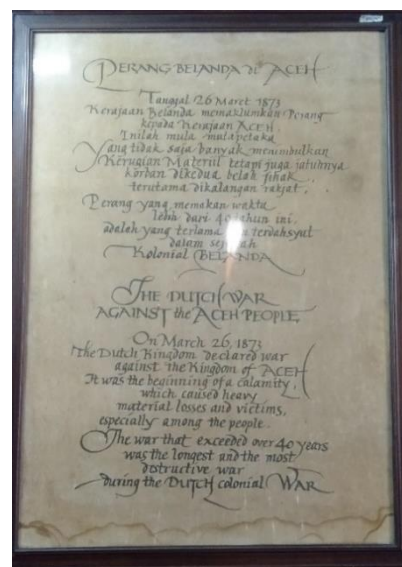 PERANG BELANDA di ACEH
Tanggal 26 Maret 1873
Kerajaan Belanda memaklumkan Perang
kepada Kerajaan ACEH.
Inilah mula malapetaka
Yang tidak saja banyak menimbulkan
Kerugian Materiil tetapi juga jatuhnya
korban dikedua belah fihak,
terutama dikalangan rakjat.
Perang yang memakan waktu
lebih dari 40 tahun ini,
adalah yang terlama terdahsyat
dalam sejarah
Kolonial BELANDA
THE DUTCH WAR
AGAINST the ACEH PEOPLE
On March 26, 1873
the Dutch Kingdom declared war
against the Kingdom of ACEH
It was the beginning of a calamity,
which caused heavy
material losses and victims,
especially among the people.
The war that exceeded over 40 years
was the longest and the most
destructive war
during the DUTCH colonial WAR